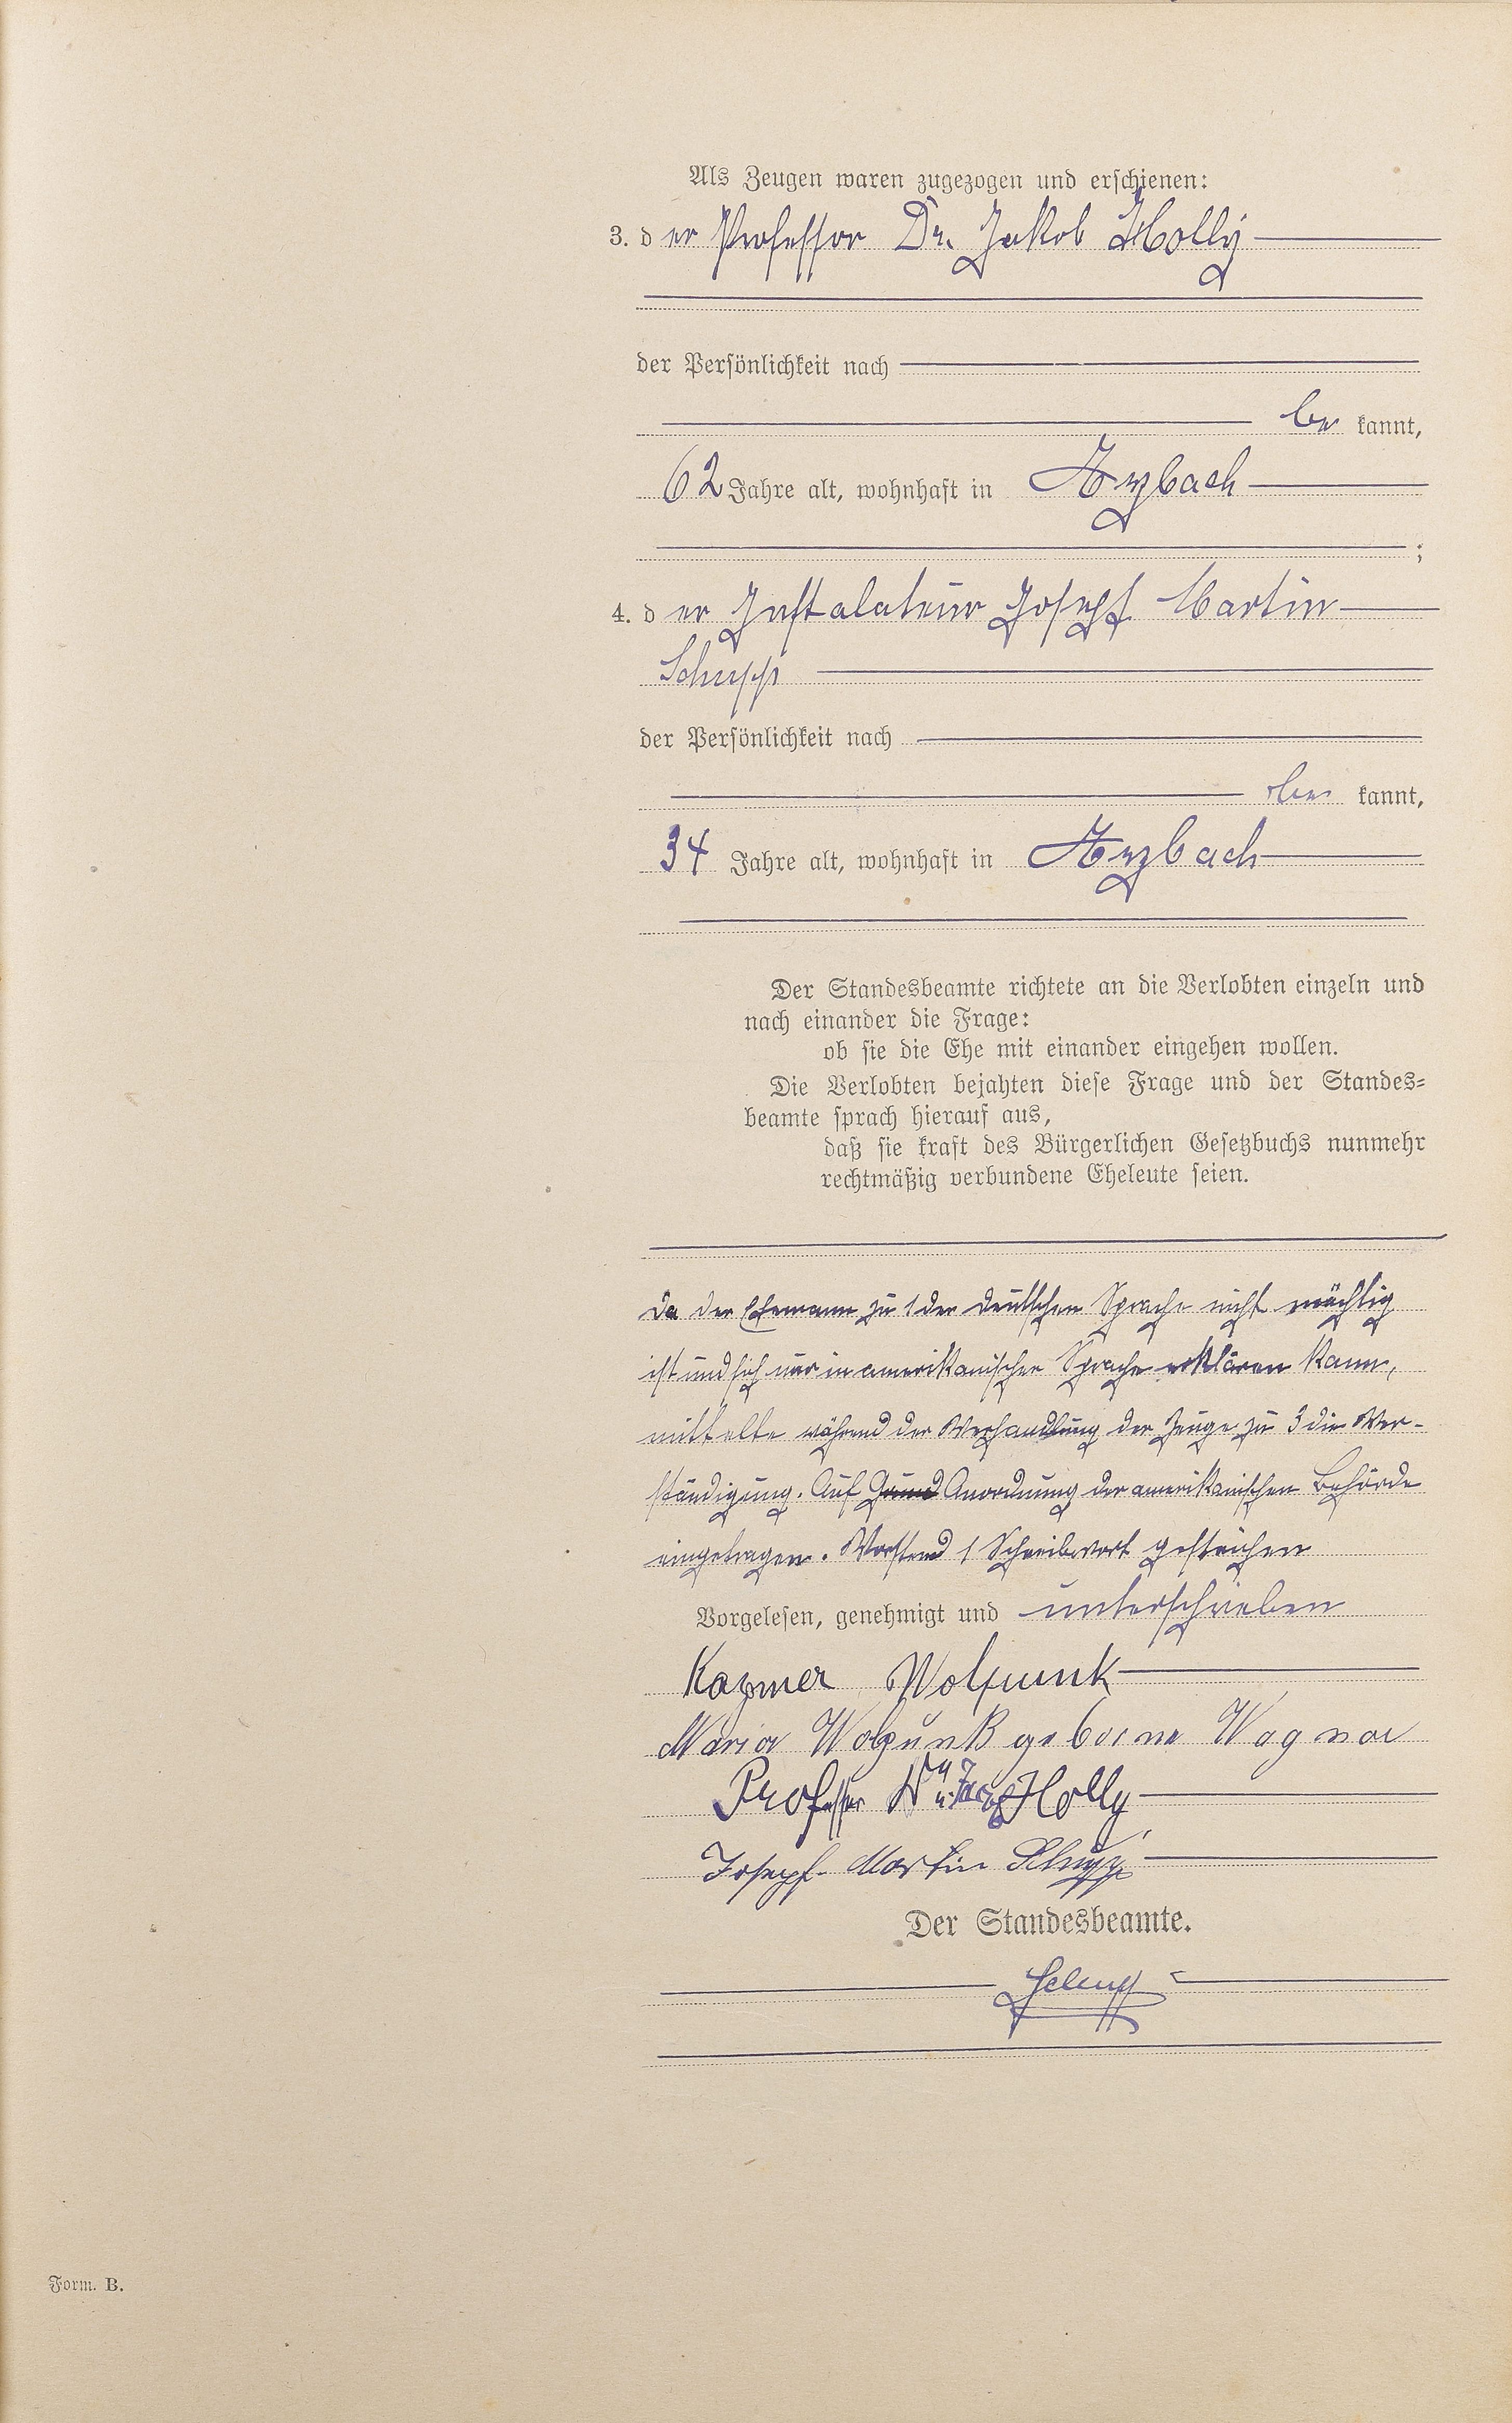 Als Zeugen waren zugezogen und erschienen:
3. der Professor Dr. Jakob Holly
der Persönlichkeit nach
be kannt,
62 Jahre alt, wohnhaft in Arzbach
;
4. der Instalateur Joseph Martin
Schupp
der Persönlichkeit nach
be kannt,
34 Jahre alt, wohnhaft in Arzbach
Der Standesbeamte richtete an die Verlobten einzeln und
nach einander die Frage:
ob sie die Ehe mit einander eingehen wollen.
Die Verlobten bejahten diese Frage und der Standes=
beamte sprach hierauf aus,
daß sie kraft des Bürgerlichen Gesetzbuchs nunmehr
rechtmäßig verbundene Eheleute seien.
Da der Ehemann zu 1 der deutschen Sprache nicht mächtig
ist und sich nur in amerikanischer Sprache erklären kann,
mittelte während der Verhandlung der Zeuge zu 3 die Ver-
ständigung. Auf Grund Anordnung der amerikanischen Behörde
eingetragen. Vorstend 1 Schreibwort gestrichen
Vorgelesen, genehmigt und unterschrieben
Kazmer Wolpunk
Maria Wolpunk geborne Wagner
Professor Holly
Joseph Martin Schupp
Der Standesbeamte.
Schupp
Form. B.